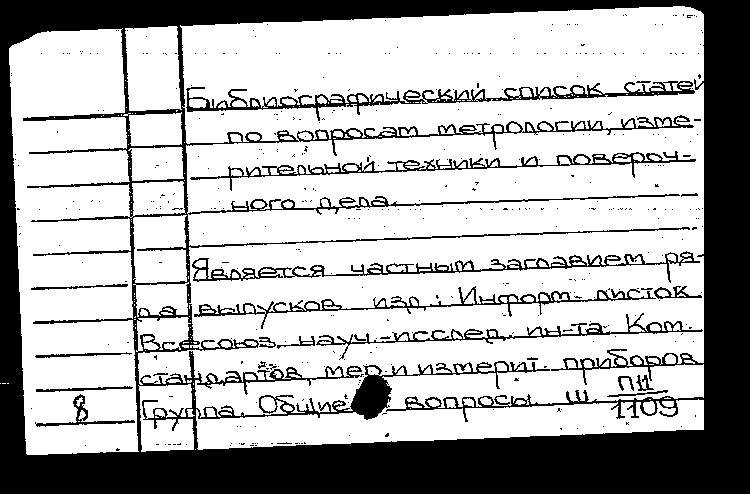 Библиографический список статей
по вопросам метрологии, изме-
рительной техники и повероч-
ного дела.
Является частным заглавием ря-
да выпусков изд.: Информ. листок
Всесоюз. науч.-исслед. ин-та Ком.
стандартов, мер и измерит. приборов
8 Группа. Общие вопросы. Ш. П11/1109